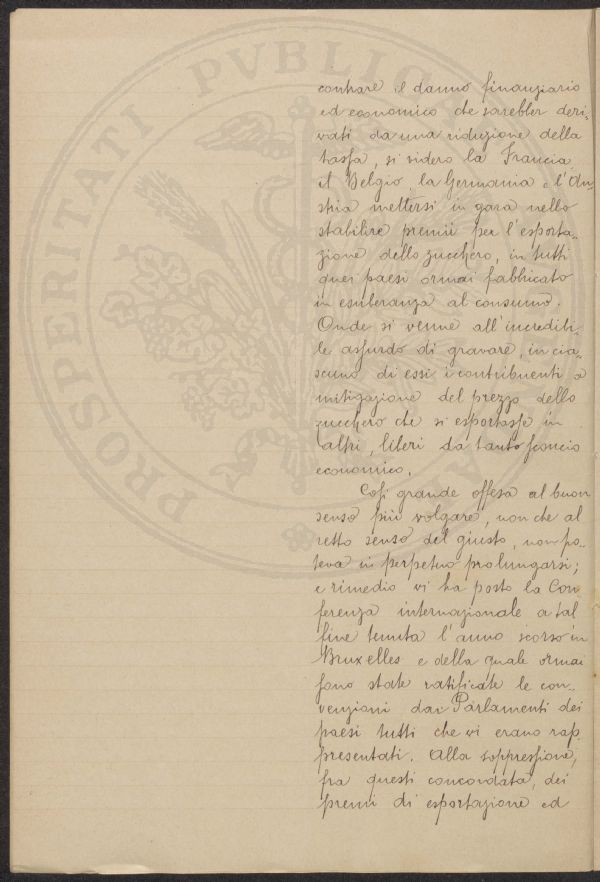 PROSPERITATI PVBLICAE
contrare il danno finanziario
ed economico che sarebber deri-
vati da una riduzione della
tassa, si videro la Francia
il Belgio, la Germania e l'Au-
stria mettersi in gara nello
stabilire premii per l'esporta-
zione dello zucchero, in tutti
quei paesi ormai fabbricato
in esuberanza al consumo.
Onde si venne all'incredibi-
le assurdo di gravare, in cia-
scuno di essi i contribuenti a
mitigazione del prezzo dello
zucchero che si esportasse in
altri, liberi da tanto sconcio
economico.
Così grande offesa al buon
senso più volgare, non che al
retto senso del giusto, non po-
teva in perpetuo prolungarsi;
e rimedio vi ha posto la Con
ferenza internazionale a tal
fine tenuta l'anno scorso in
Bruxelles e della quale ormai
sono state ratificate le con-
venzioni dai Parlamenti dei
paesi tutti che vi erano rap
presentati. Alla soppressione,
fra questi concordata, dei
premi di esportazione ed